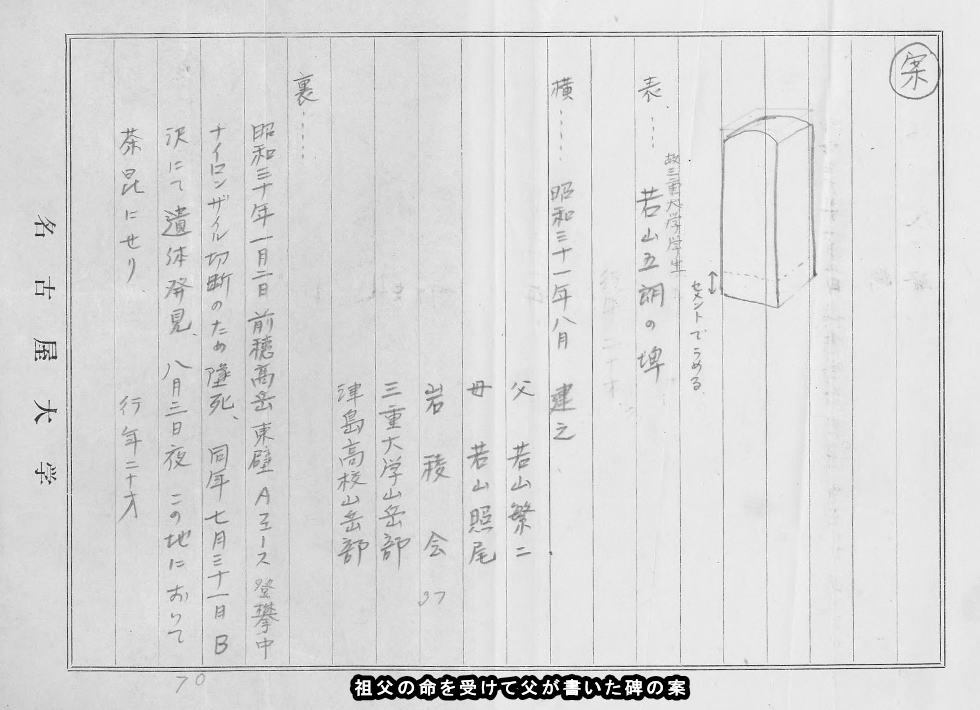 案
セメントでうめる
表……
故三重大学学生
若山五朗の埤
横…… 昭和三十一年八月 建之
父 若山繁二
母 若山照尾
岩稜会
三重大学山岳部
津島高校山岳部
裏……
昭和三十年一月二日前穂高岳東壁Aフェース登攀中
ナイロンザイル切断のため墜死、同年七月三十一日B
沢にて遺体発見、八月三日夜この地において
荼毘にせり 行年二十才
名古屋大学
37
70
祖父の命を受けて父が書いた碑の案